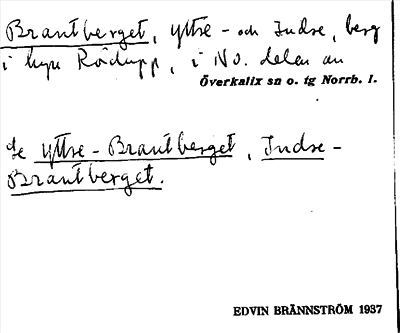 Brantberget, yttre - och Indre, berg
i byn Rödupp, i NO. delen av
Överkalix sn o. tg Norrb. l.
Se yttre - Brantberget, Indre -
Brantberget.
EDVIN BRÄNNSTRÖM 1937